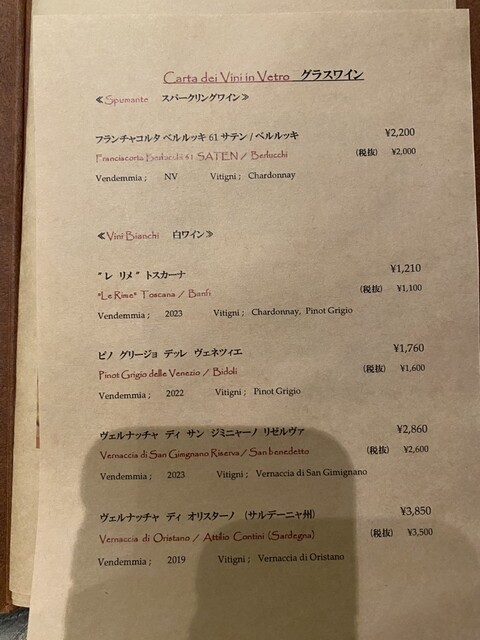 Carta dei Vini in Vetro グラスワイン
≪Spumante スパークリングワイン≫
フランチャコルタ ベルルッキ 61 サテン / ベルルッキ ¥2,200
Franciacorta Berlucchi 61 SATEN / Berlucchi (税抜) ¥2,000
Vendemmia ; NV Vitigni ; Chardonnay
≪Vini Bianchi 白ワイン≫
"レ リメ" トスカーナ ¥1,210
"Le Rime" Toscana / Banfi (税抜) ¥1,100
Vendemmia ; 2023 Vitigni ; Chardonnay, Pinot Grigio
ピノ グリージョ デッレ ヴェネツィエ ¥1,760
Pinot Grigio delle Venezio / Bidoli (税抜) ¥1,600
Vendemmia ; 2022 Vitigni ; Pinot Grigio
ヴェルナッチャ ディ サン ジミニャーノ リゼルヴァ ¥2,860
Vernaccia di San Gimgnano Riserva / San benedetto (税抜) ¥2,600
Vendemmia ; 2023 Vitigni ; Vernaccia di San Gimignano
ヴェルナッチャ ディ オリスターノ (サルデーニャ州) ¥3,850
Vernaccia di Oristano / Attilio Contini (Sardegna) (税抜) ¥3,500
Vendemmia ; 2019 Vitigni ; Vernaccia di Oristano